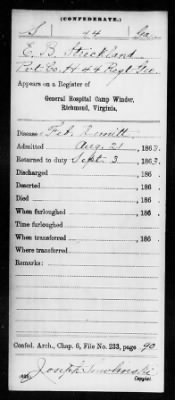 (CONFEDERATE.)
S 44 Ga.
E. B. Strickland
Pvt. Co. H 44 Regt Geo.
Appears on a Register of
General Hospital Camp Winder,
Richmond, Virginia.
Disease Feb. Remitt
Admitted Aug. 21, 1863.
Returned to duty Sept. 3, 1863.
Discharged , 186
Deserted , 186
Died , 186
When furloughed , 186
Time furloughed
When transferred , 186
Where transferred
Remarks:
Confed. Arch., Chap. 6, File No. 233, page 90
Joseph
Copyist.